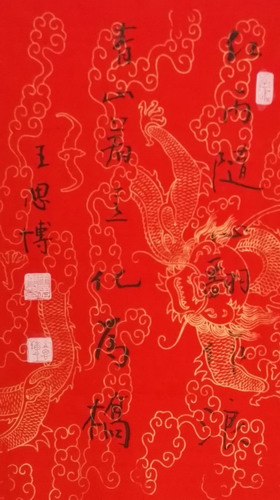 红雨隨心翻作浪
青山着意化為橋
王思博